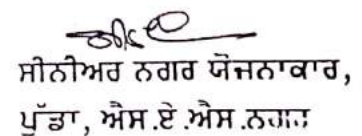 ਸੀਨੀਅਰ ਨਗਰ ਯੋਜਨਾਕਾਰ,
ਪੁੱਡਾ, ਐਸ.ਏ.ਐਸ.ਨਗਰ